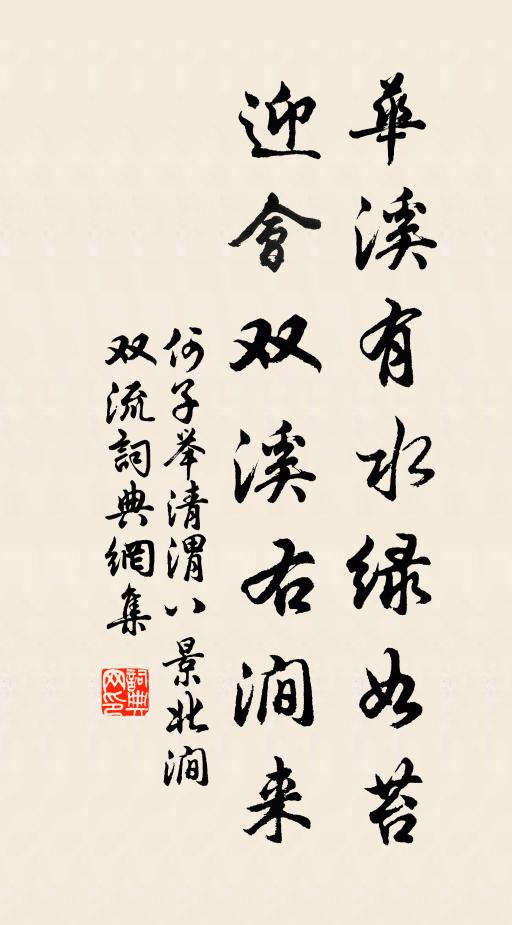 華溪有水緑如苔
迎會双溪右澗来
何子举清渭八景北澗
双流詞典網集
詞典网印